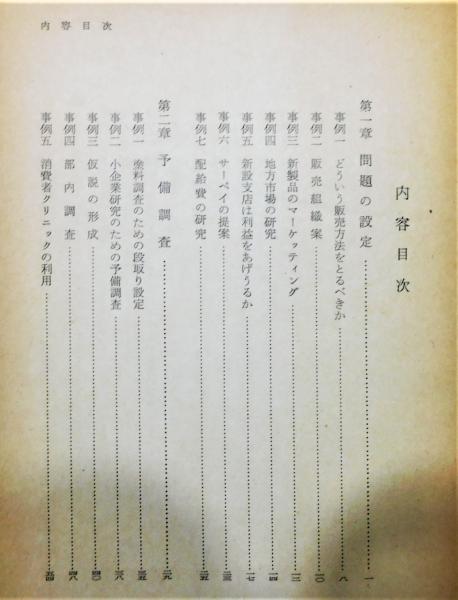 内容目次
内容目次
第一章 問題の設定……一
事例一 どういう販売方法をとるべきか……八
事例二 販売組織案……一〇
事例三 新製品のマーケッティング……一三
事例四 地方市場の研究……一四
事例五 新設支店は利益をあげうるか……一七
事例六 サーベイの提案……二三
事例七 配給費の研究……二五
第二章 予備調査……二九
事例一 塗料調査のための段取り設定……三五
事例二 小企業研究のための予備調査……三八
事例三 仮説の形成……四〇
事例四 部内調査……四八
事例五 消費者クリニックの利用……五四